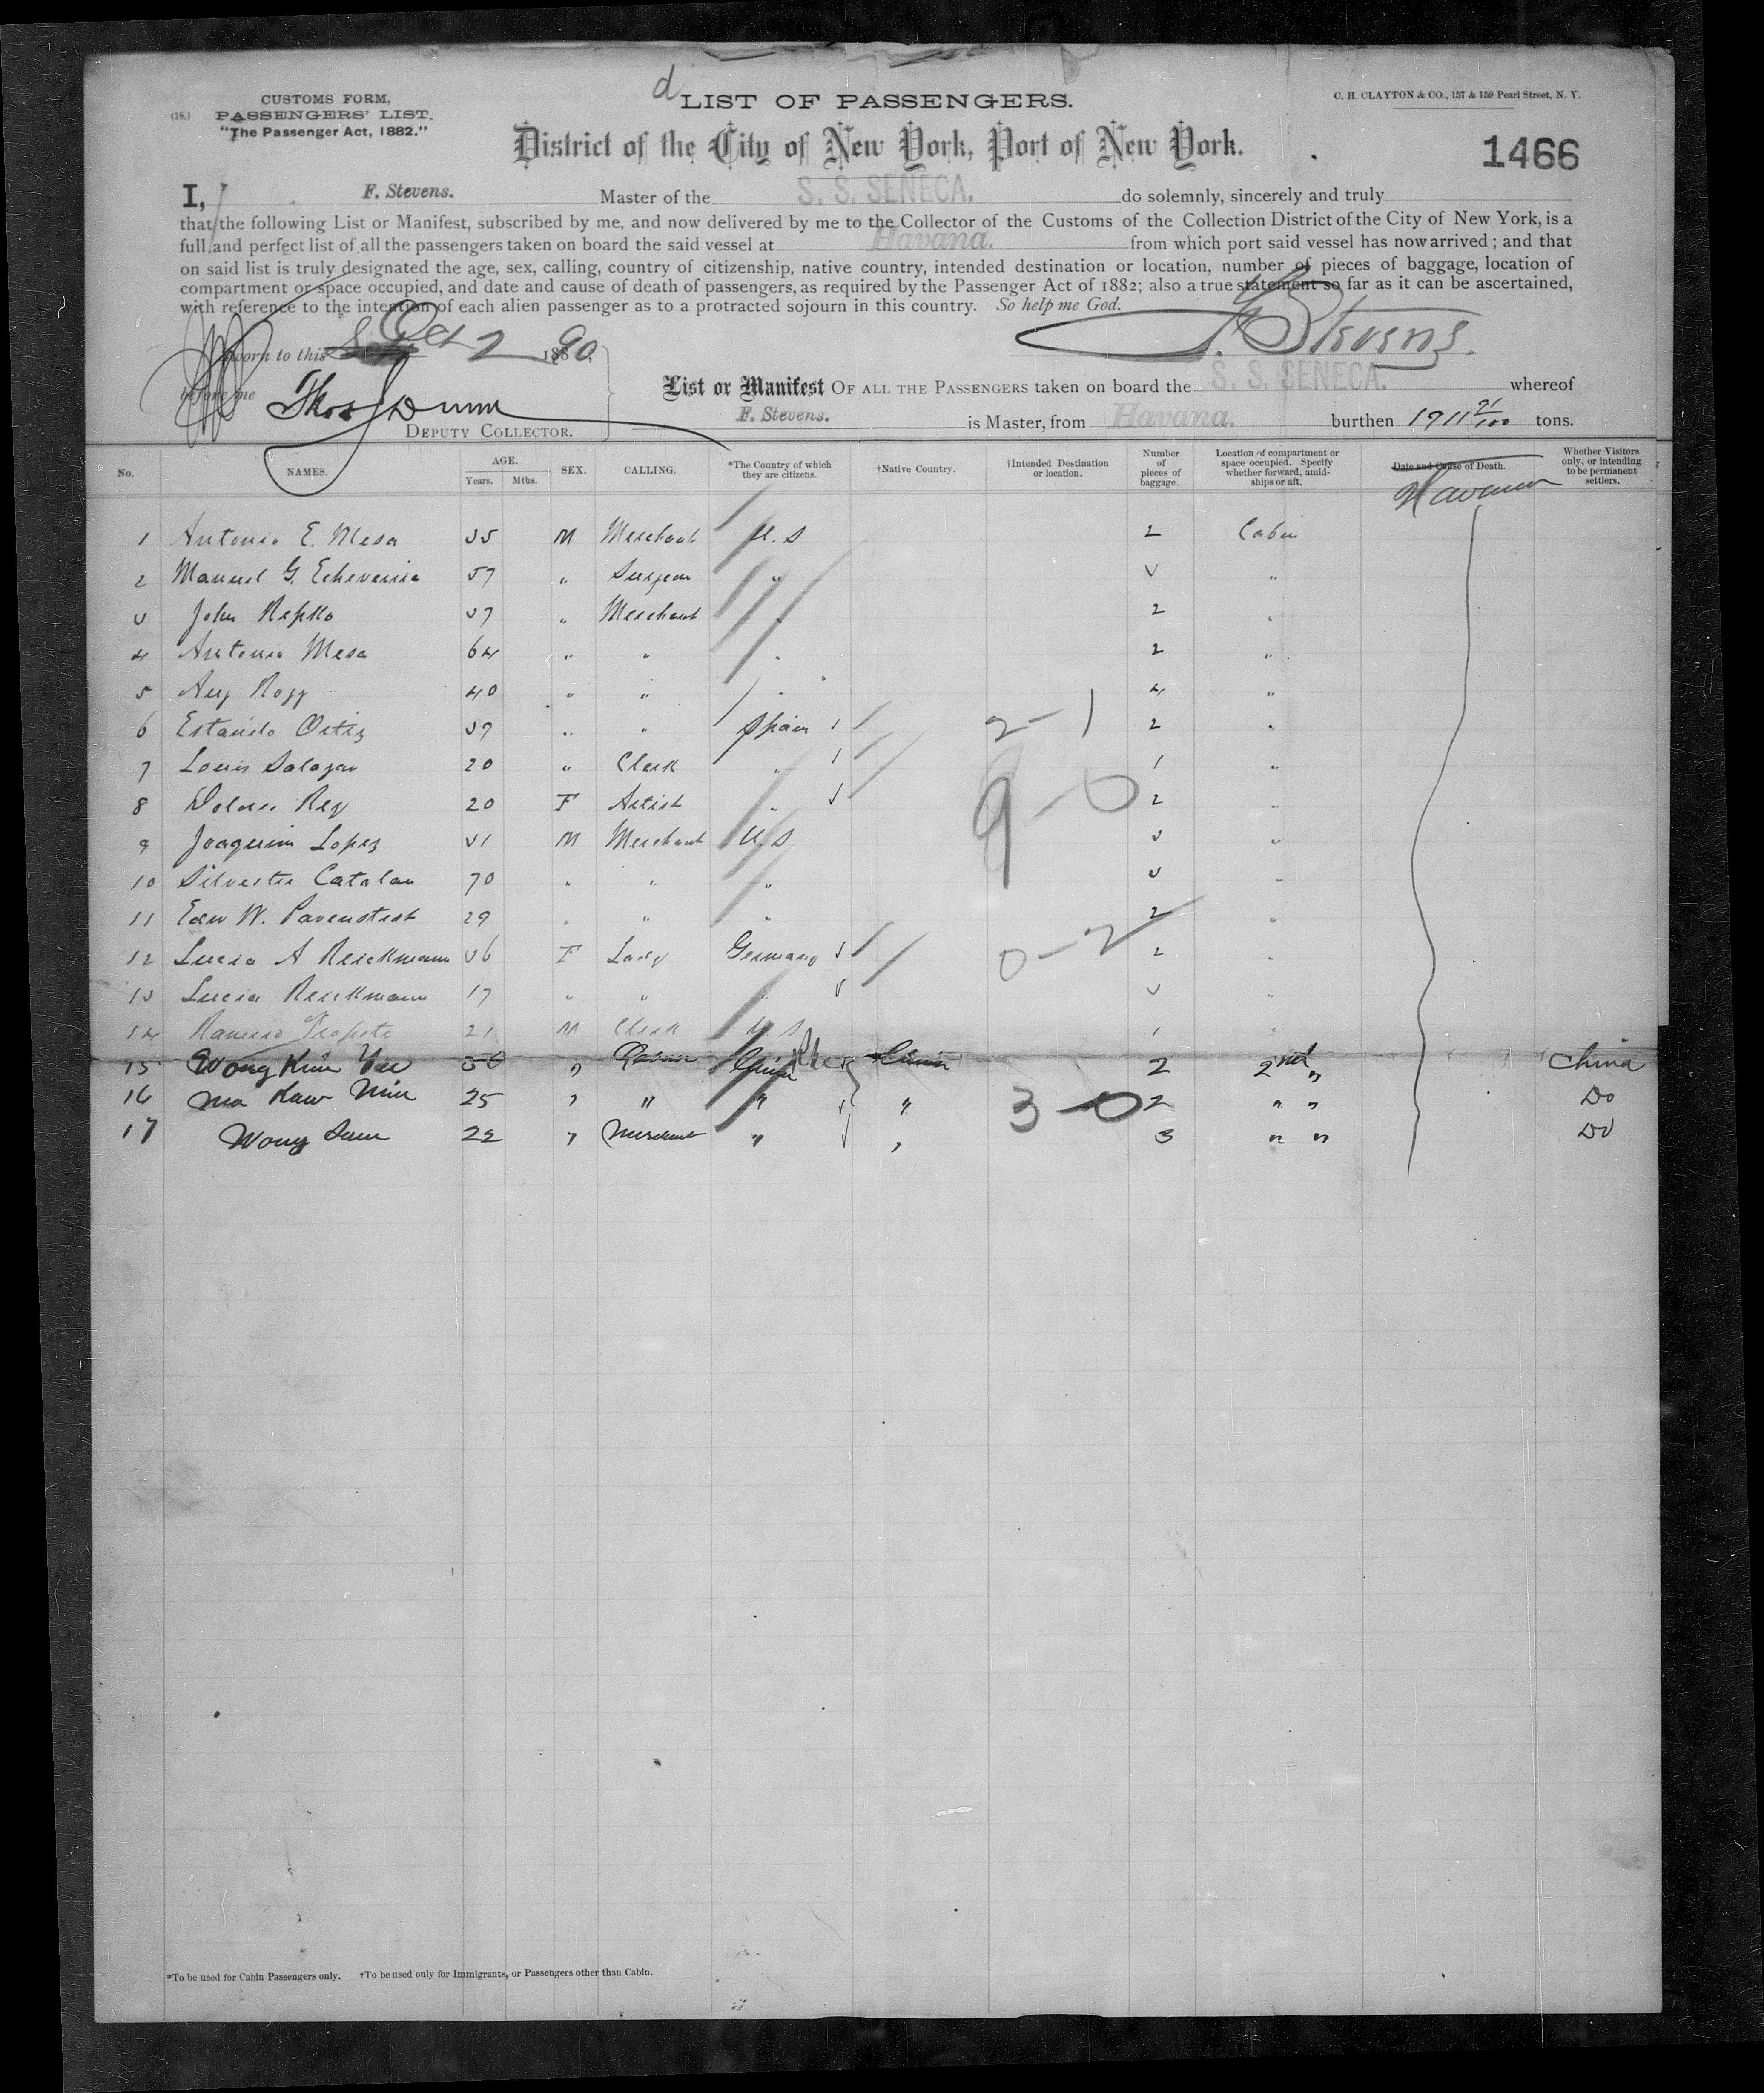 d LIST OF PASSENGERS.
CUSTOMS FORM,
(18.) PASSENGERS' LIST.
"The Passenger Act, 1882."
C. H. CLAYTON & CO., 157 & 159 Pearl Street, N. Y.
District of the City of New York, Port of New York.
1466
I, F. Stevens. Master of the S. S. SENECA. do solemnly, sincerely and truly
that the following List or Manifest, subscribed by me, and now delivered by me to the Collector of the Customs of the Collection District of the City of New York, is a
full and perfect list of all the passengers taken on board the said vessel at Havana. from which port said vessel has now arrived; and that
on said list is truly designated the age, sex, calling, country of citizenship, native country, intended destination or location, number of pieces of baggage, location of
compartment or space occupied, and date and cause of death of passengers, as required by the Passenger Act of 1882; also a true statement so far as it can be ascertained,
with reference to the intention of each alien passenger as to a protracted sojourn in this country. So help me God.
Sworn to this Oct 2 1890 F. Stevens.
before me Thos J Dunn
DEPUTY COLLECTOR.
List or Manifest OF ALL THE PASSENGERS taken on board the S. S. SENECA. whereof
F. Stevens. is Master, from Havana. burthen 1911 21/100 tons.
No. NAMES. AGE. Years. Mths. SEX. CALLING. *The Country of which they are citizens. †Native Country. †Intended Destination or location. Number of pieces of baggage. Location of compartment or space occupied. Specify whether forward, amidships or aft. Date and Cause of Death. Whether Visitors only, or intending to be permanent settlers.
Havana
1 Antonio E. Mesa 35 M Merchant U. S 2 Cabin
2 Manuel G. Echeverria 57 " Surgeon " 3 "
3 John Repko 37 " Merchant " 2 "
4 Antonio Mesa 64 " " " 2 "
5 Aug 40 " " " 4 "
6 Ortiz 39 " " Spain 2 - 1 2 "
7 Louis Salazar 20 " Clerk " 1 "
8 Dolores Rey 20 F Artist " 9 - 0 2 "
9 Joaquim Lopez 31 M Merchant U. S 3 "
10 Silvestre Catalan 70 " " " 3 "
11 Edw W. Pavenstedt 29 " " " 2 "
12 Lucia A Reickmann 36 F Lady Germany 0 - 2 2 "
13 Lucia Reickmann 17 " " " 3 "
14 21 M Clerk U. S 1 "
15 Wong Kim Yee " China China 2 2nd " China
16 Ma Kaw Min 25 " " " " 3 - 0 2 " " Do
17 Wong Sam 22 " Merchant " " 3 " " Do
*To be used for Cabin Passengers only. †To be used only for Immigrants, or Passengers other than Cabin.